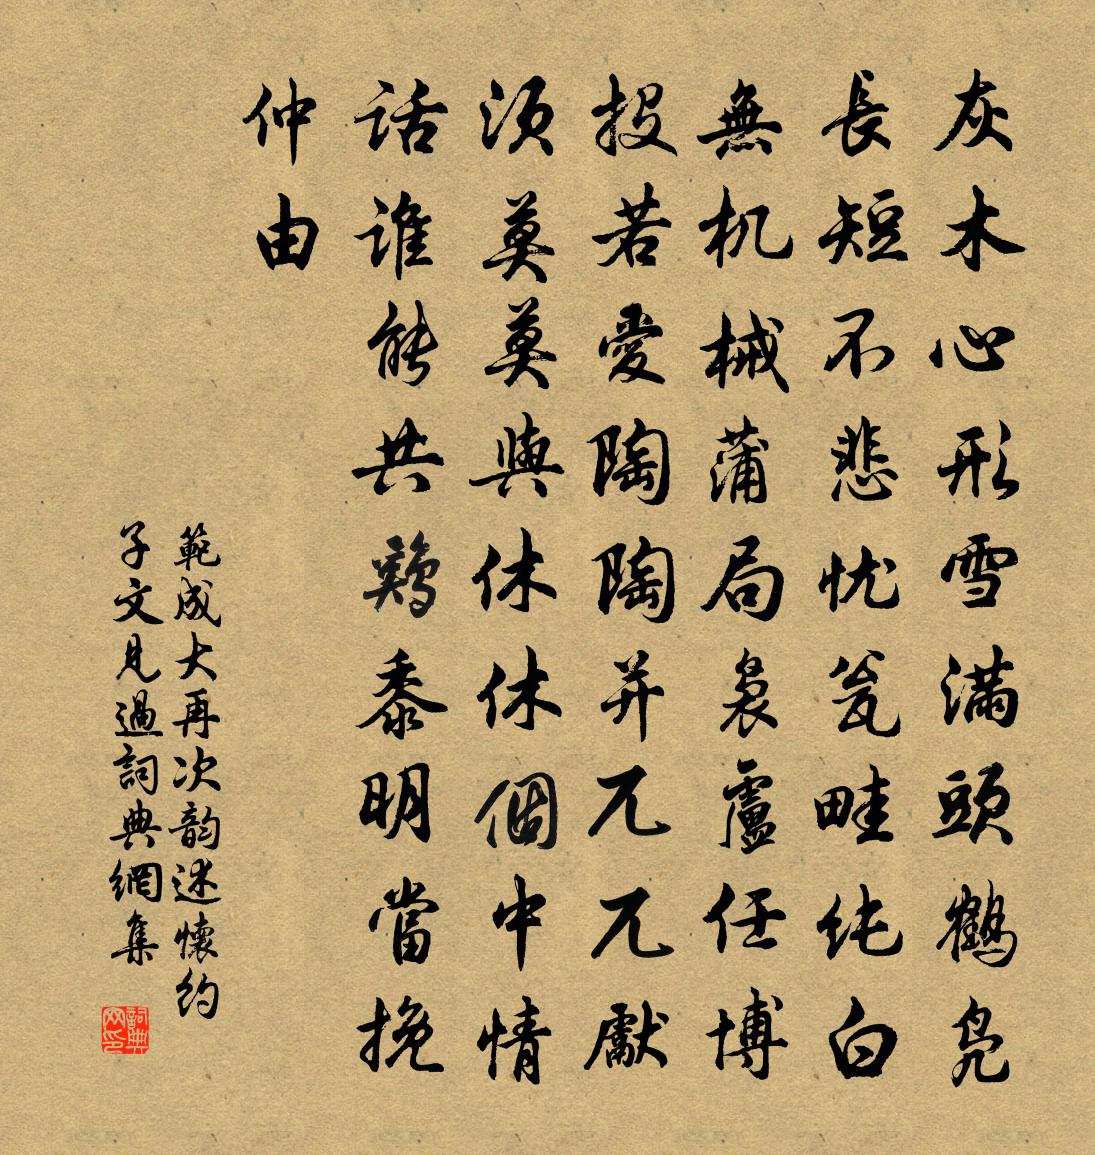 灰木心形雪满頭鶴凫
長短不悲忧瓮畦纯白
無机械蒲局袅盧任博
投若愛陶陶并兀兀獻
须莫莫與休休個中情
话谁能共鷄黍明當挽
仲由
範成大再次韵述懷约
子文見過詞典網集
詞典网印